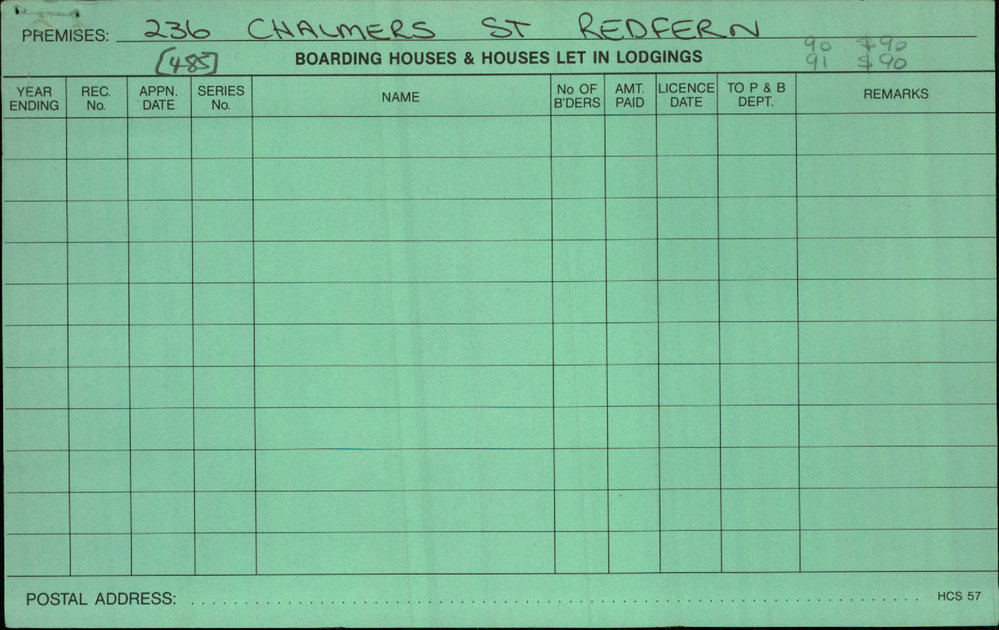 PREMISES: 236 CHALMERS ST REDFERN
[485] BOARDING HOUSES & HOUSES LET IN LODGINGS 90 $90
91 $90
YEAR ENDING REC. No. APPN. DATE SERIES No. NAME No OF B'DERS AMT. PAID LICENCE DATE TO P & B DEPT. REMARKS
POSTAL ADDRESS: HCS 57